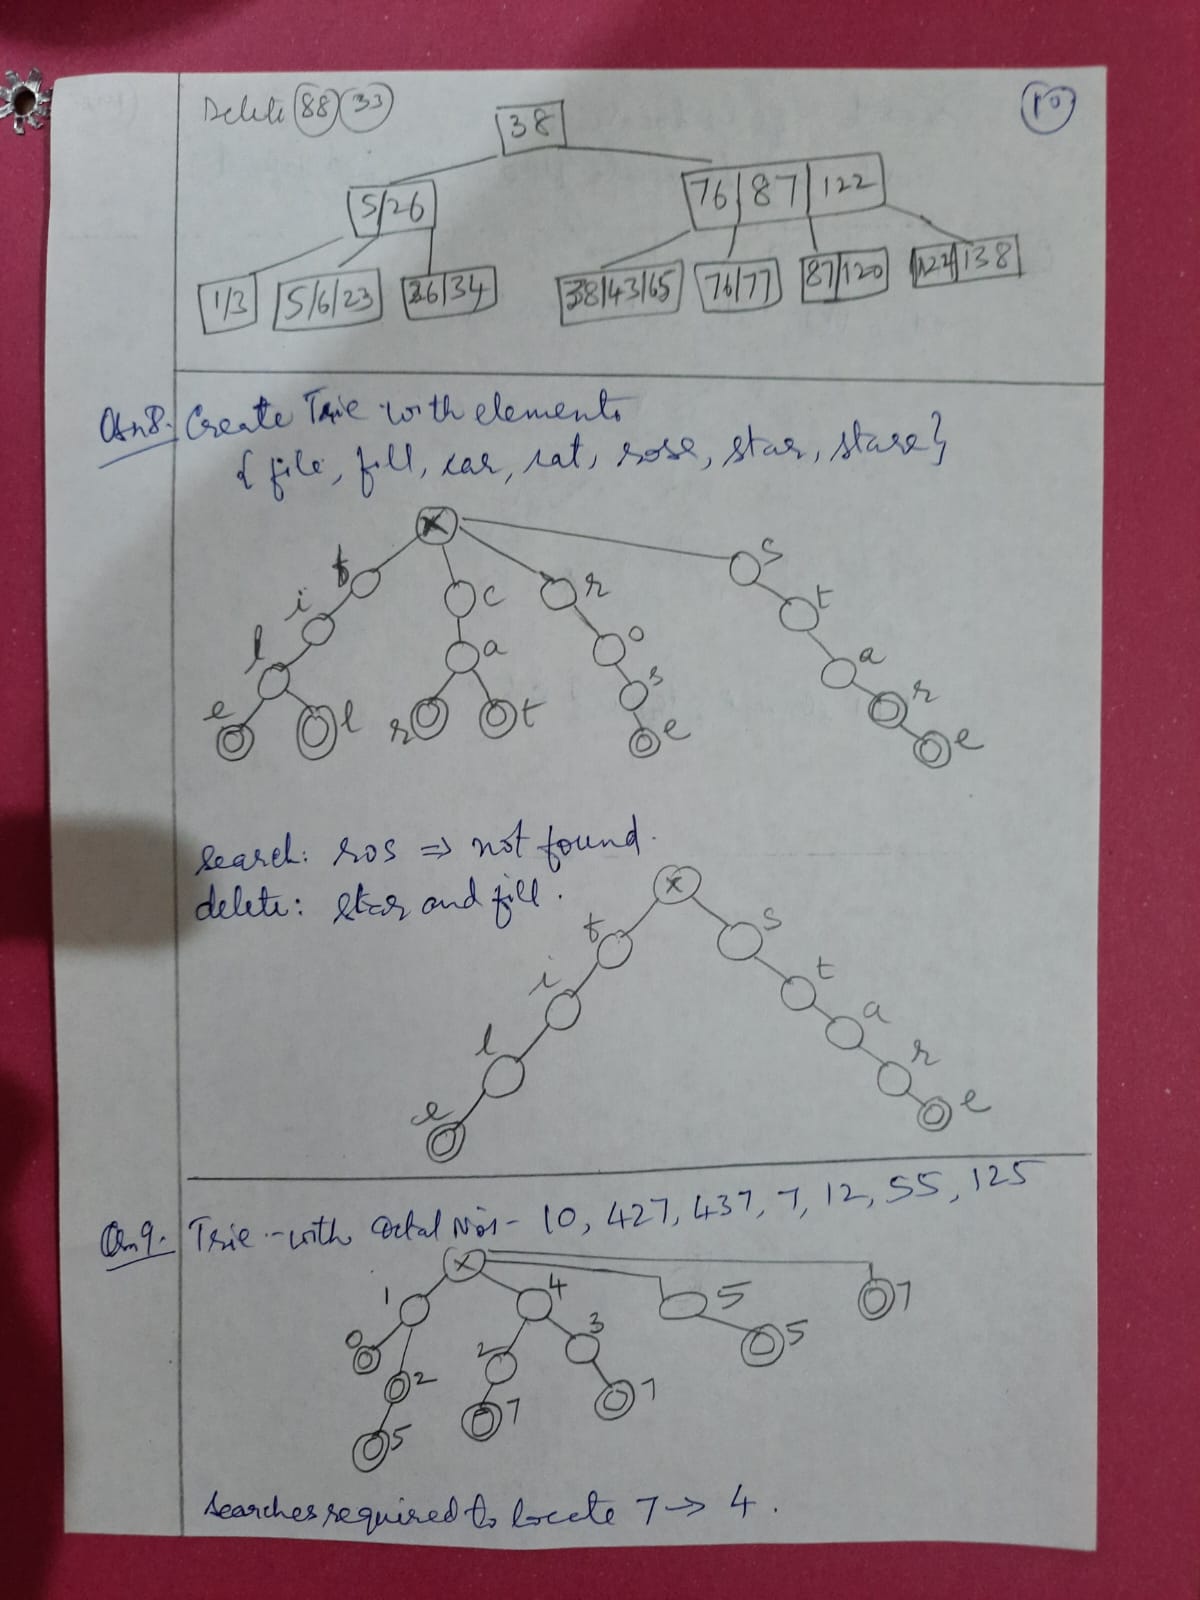 Delete 88 33
10
38
5/26 76|87|122
1/3 5/6/23 26|34 38|43|65 76|77 87|120 122|138
Qn8. Create Trie with elements
{file, fill, car, cat, rose, star, stare}
x
f c r s
i a o t
l r t s a
e l e r
e
search: ros => not found.
delete: star and fill.
x
f s
i t
l a
e r
e
Qn9. Trie - with Octal No's - 10, 427, 437, 7, 12, 55, 125
x
1 4 5 7
0 2 2 3 5
5 7 7
Searches required to locate 7 → 4.